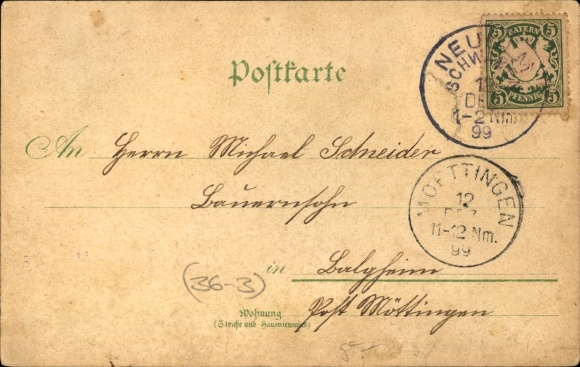 BAYERN
5 5
5 5
PFENNIG
NEU
SCHW
1
DE
1-2 Nm.
99
Postkarte
An Herrn Michael Schneider
Bauernsohn
MOETTINGEN
12
DEZ
11-12 Nm.
99
in Balgheim
Post Möttingen
(36-3)
Wohnung
(Straße und Hausnummer)